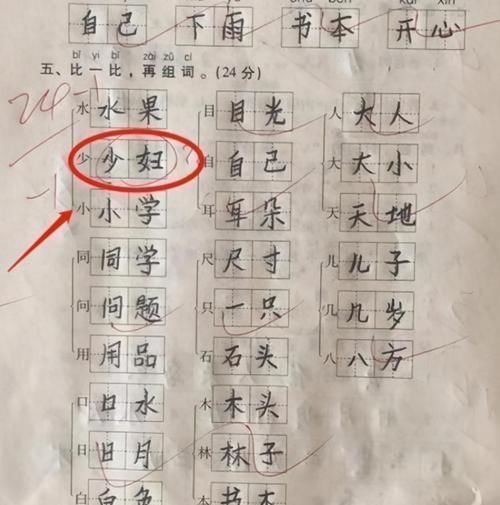 自己 下雨 书本 开心
bǐ yì bǐ zài zǔ cí
五、比一比，再组词。(24 分)
24-1
水 水果 目 目光 人 大人
少 少妇 自 自己 大 大小
-1
小 小学 耳 耳朵 天 天地
同 同学 尺 尺寸 儿 儿子
问 问题 只 一只 几 几岁
用 用品 石 石头 八 八方
口 口水 木 木头
日 日月 林 林子
白 白色 本 书本